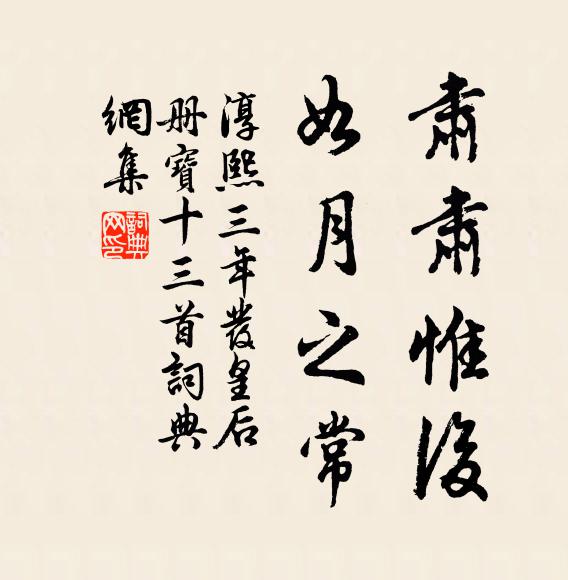 肅肅惟後
如月之常
淳熙三年發皇后
册寶十三首詞典
網集
詞典
网印